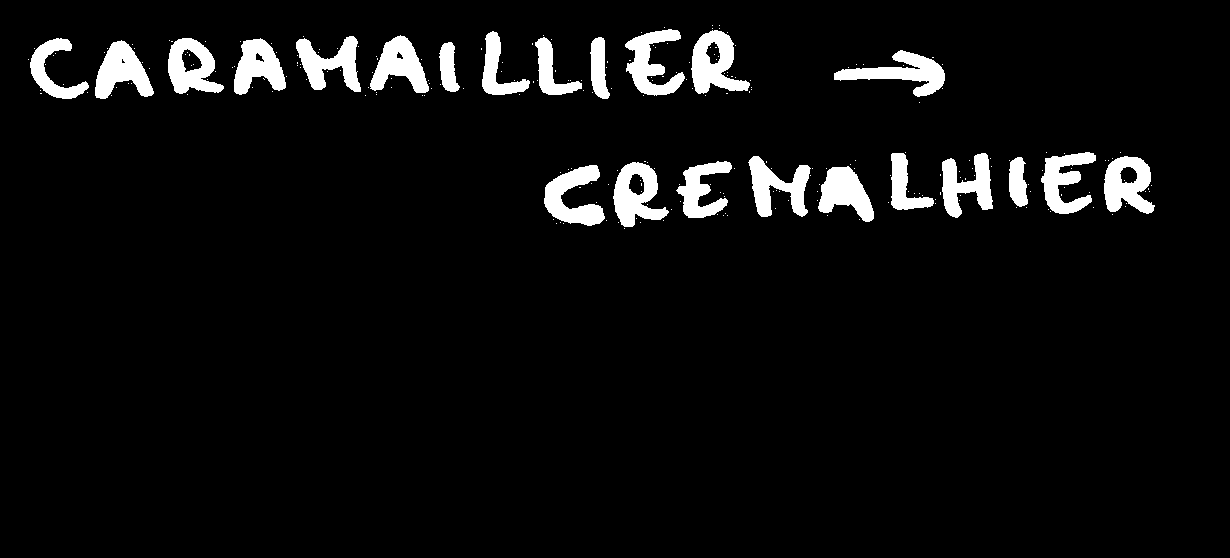 CARAMAILLIER →
CREMALHIER